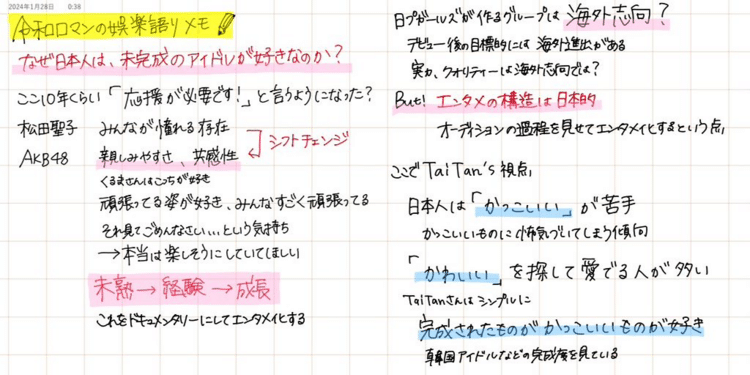 2024年1月28日 0:38
令和ロマンの娯楽語りメモ
なぜ日本人は、未完成のアイドルが好きなのか?
ここ10年くらい「応援が必要です!」と言うようになった?
松田聖子 みんなが憧れる存在
AKB48 親しみやすさ、共感性
シフトチェンジ
くるまさんはこっちが好き
頑張ってる姿が好き、みんなすごく頑張ってる
それ見てごめんなさい…という気持ち
→本当は楽しそうにしていてほしい
未熟→経験→成長
これをドキュメンタリーにしてエンタメ化する
日プガールズが作るグループは海外志向?
デビュー後の目標的には海外進出がある
実力、クオリティーは海外志向では?
But! エンタメの構造は日本的
オーディションの過程を見せてエンタメ化するという点
ここでTaiTan's視点
日本人は「かっこいい」が苦手
かっこいいものに怖気づいてしまう傾向
「かわいい」を探して愛でる人が多い
TaiTanさんはシンプルに
完成されたものがかっこいいものが好き
韓国アイドルなどの完成度を見ている